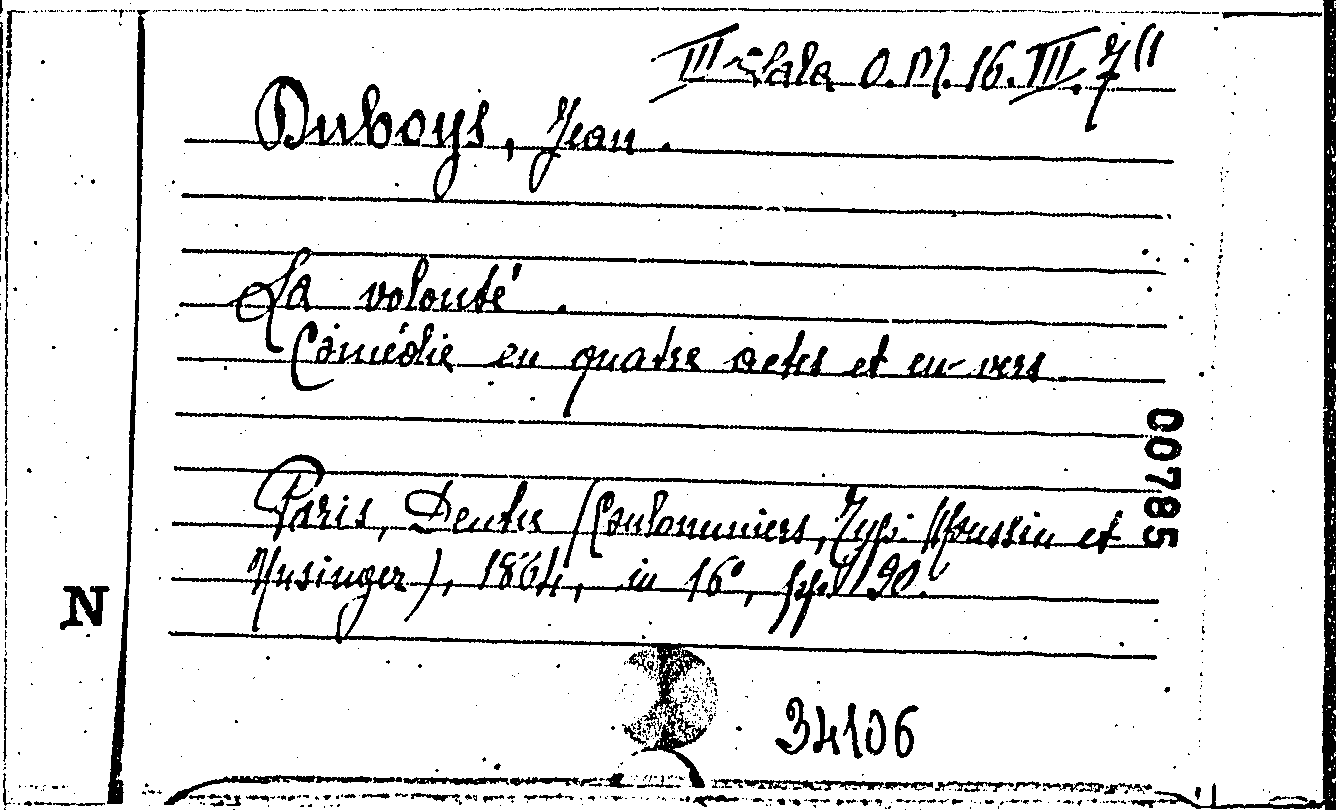 III Sala O.M. 16. III. 7 11
Duboys, Jean.
La volonté.
Comédie en quatre actes et en vers
Paris, Dentu (Coulommiers, Typ. Moussin et
Unsinger), 1864, in 16°, pp. 190.
00785
N
34106